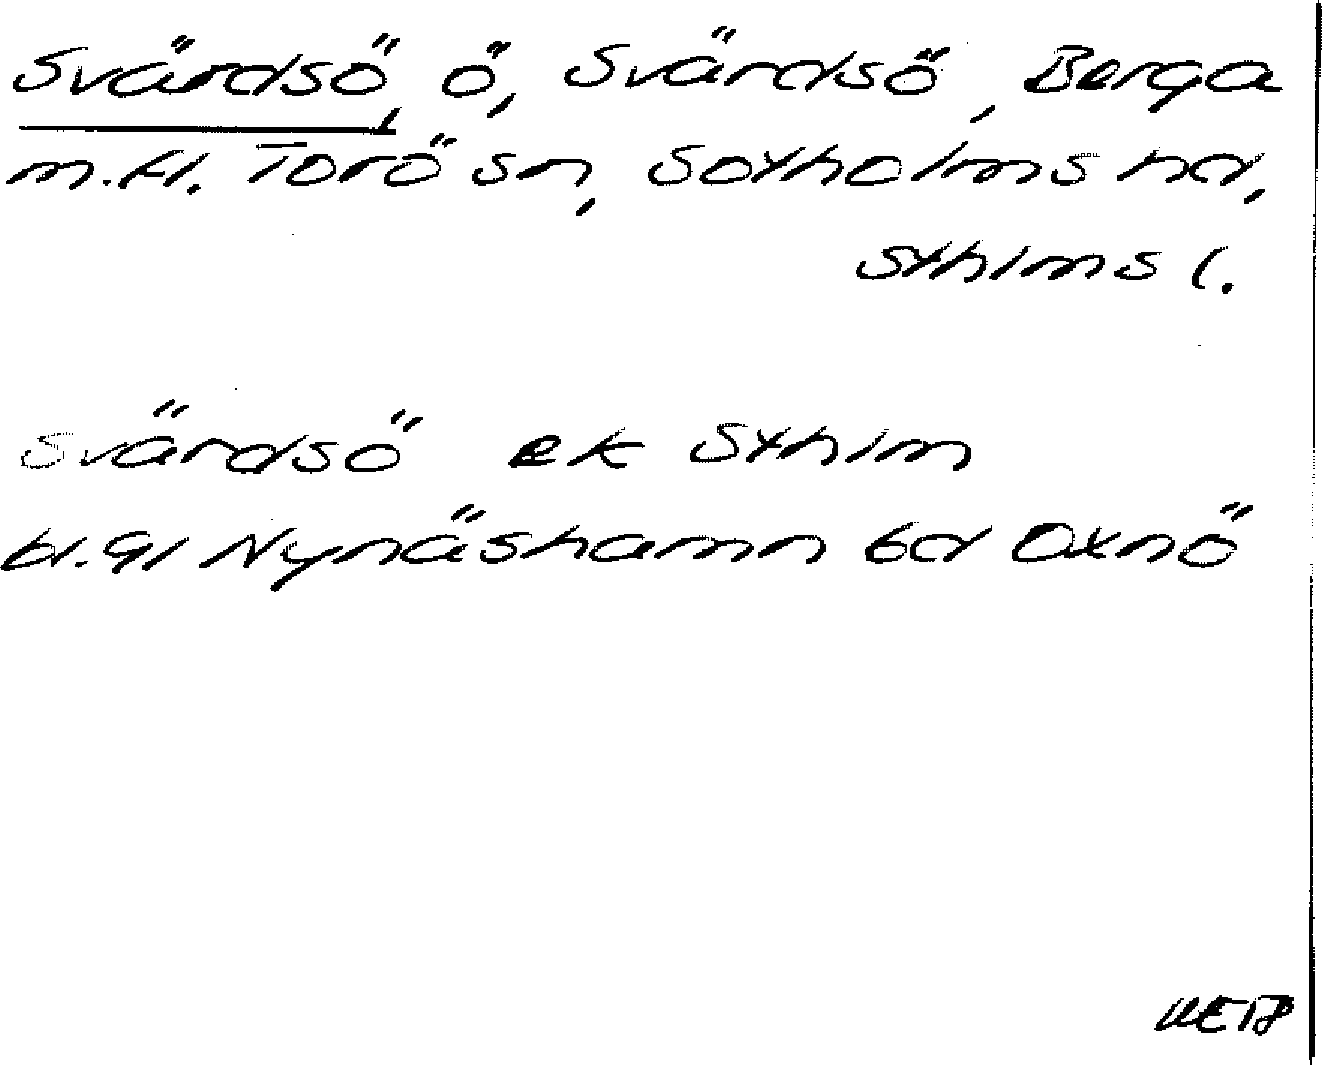 Svärdsö, ö, Svärdsö, Berga
m.fl. Torö sn, Sotholms hd,
Sthlms l.
Svärdsö ek Sthlm
bl. 91 Nynäshamn bd Oxnö